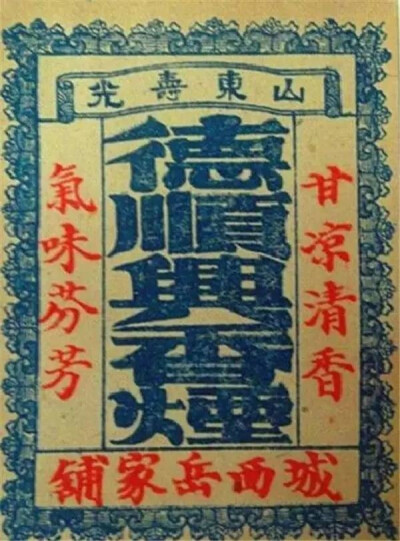 山東壽光
德順興香煙
甘凉清香
氣味芬芳
城西岳家舖